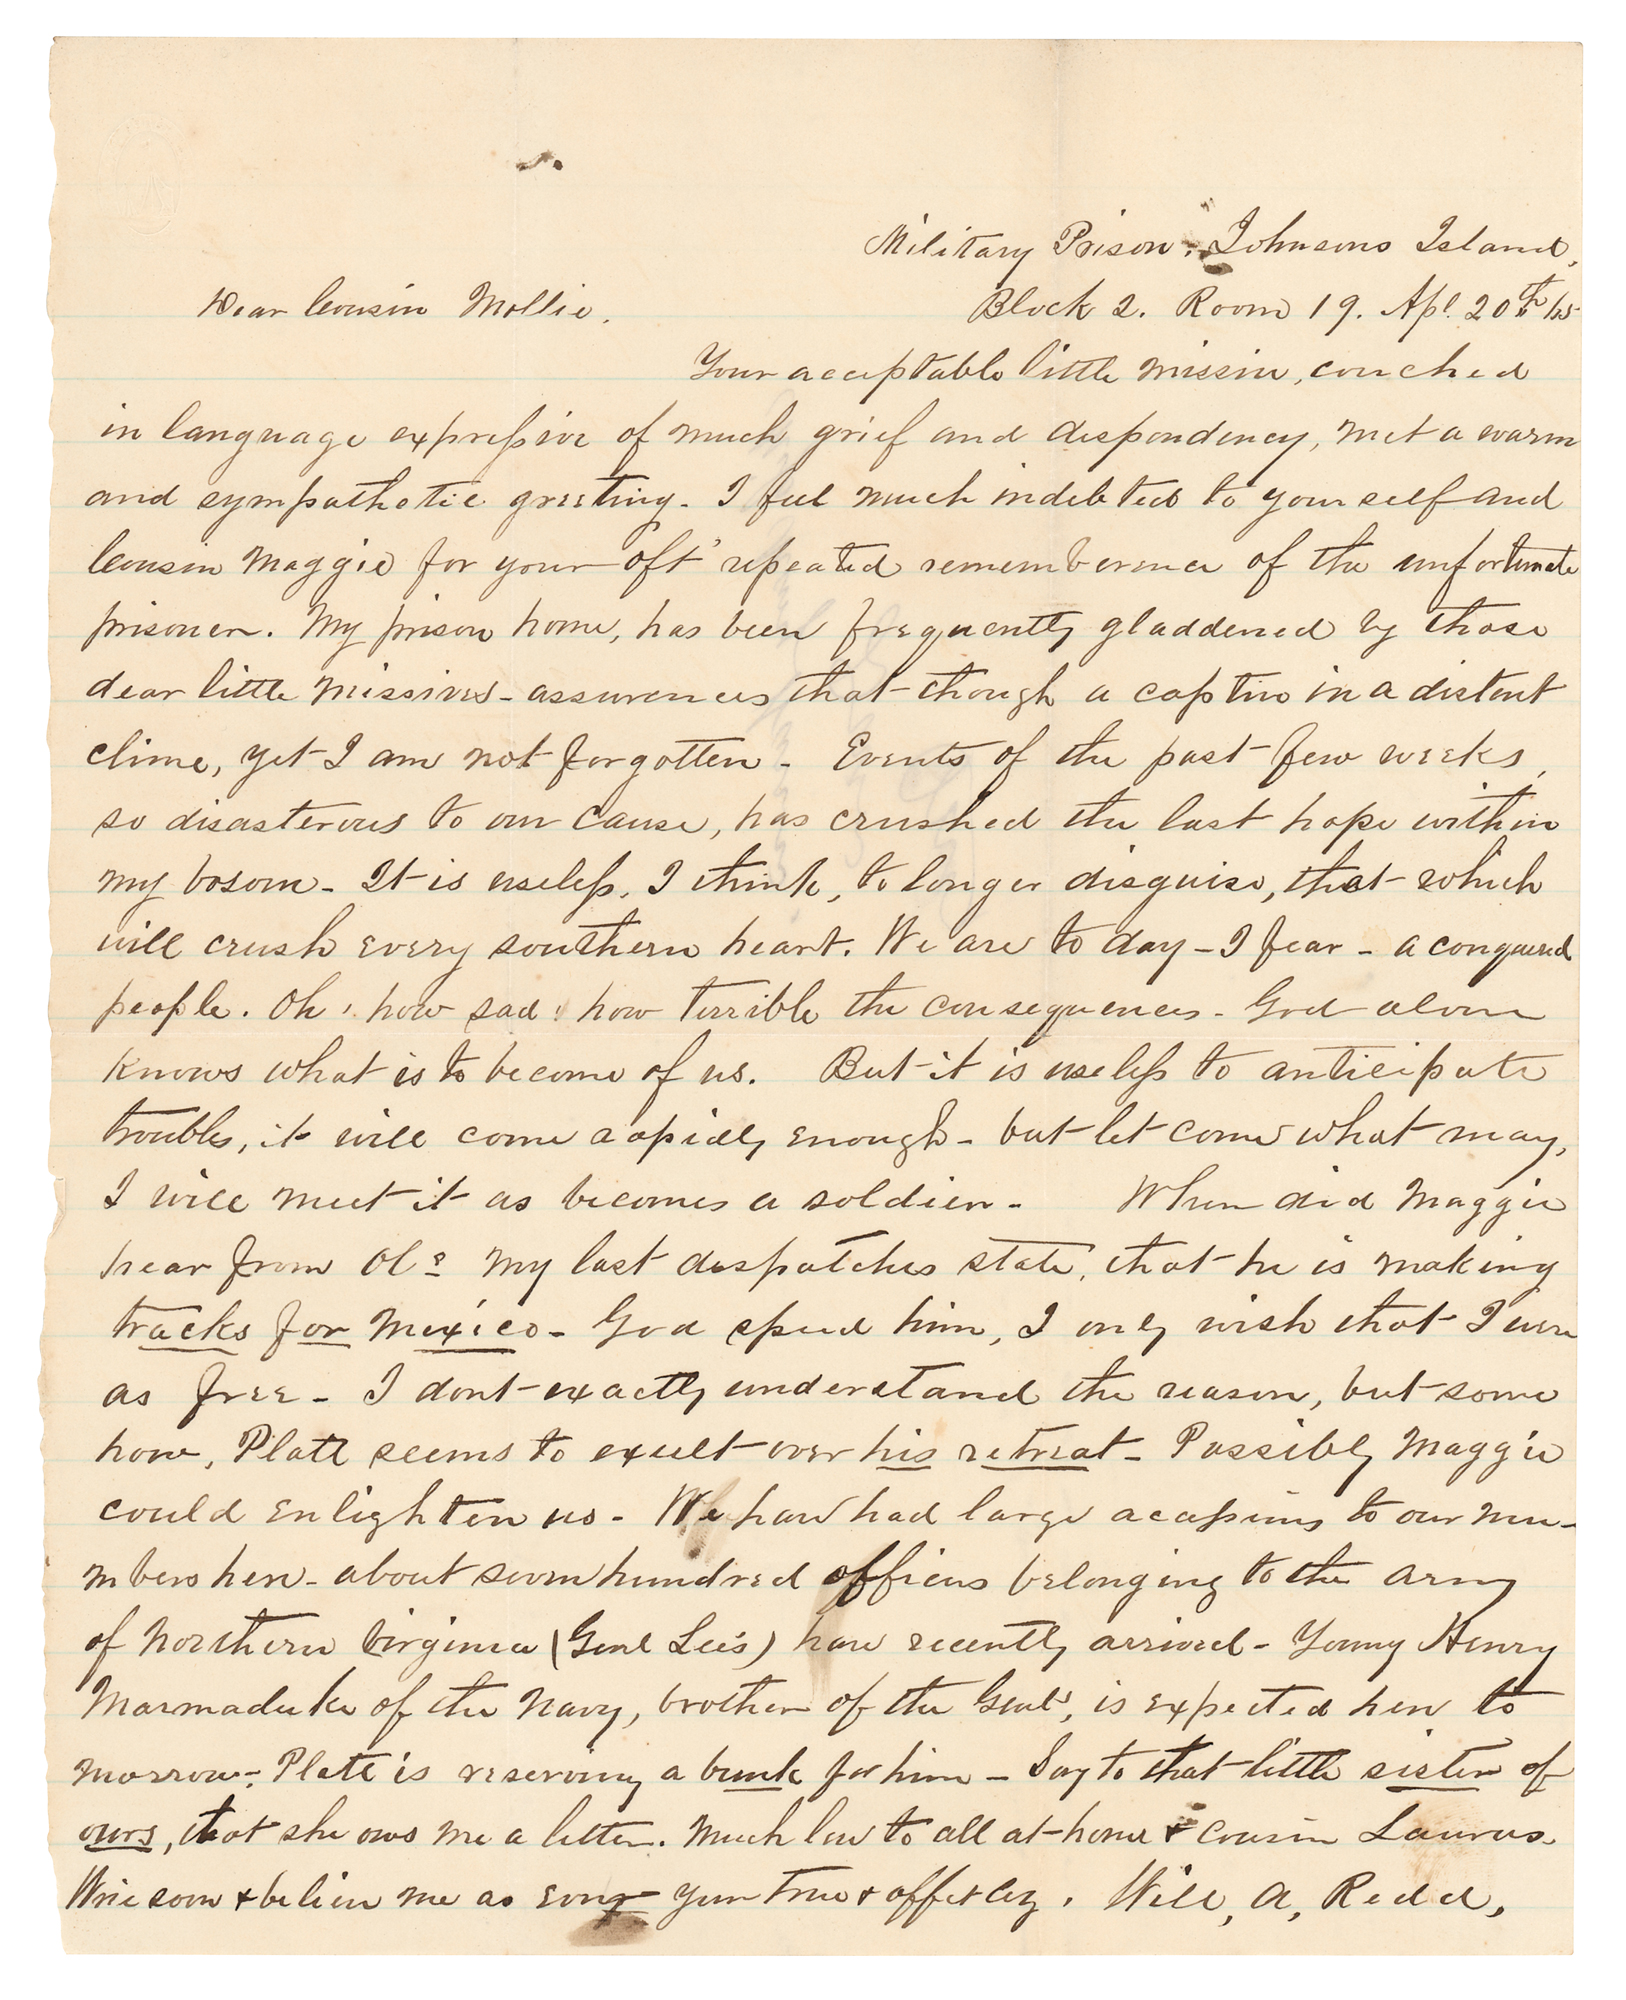 Military Prison. Johnsons Island,
Dear Cousin Mollie. Block 2. Room 19. Apl. 20th /65
Your acceptable little missive, couched
in language expressive of much grief and despondency, met a warm
and sympathetic greeting. I feel much indebted to yourself and
Cousin Maggie for your oft' repeated rememberence of the unfortunate
prisoner. My prison home, has been frequently gladdened by those
dear little missives - assurences that though a captive in a distent
clime, yet I am not forgotten - Events of the past few weeks,
so disasterous to our cause, has crushed the last hope within
my bosom - It is useless, I think, to longer disguise, that which
will crush every southern heart. We are to day - I fear - a conquered
people. Oh! how sad! how terrible the consequences - God alone
knows what is to become of us. But it is useless to anticipate
troubles, it will come rapidly enough - but let come what may,
I will meet it as becomes a soldier - When did Maggie
hear from Ol? My last despatches state, that he is making
tracks for Mexico - God speed him, I only wish that I were
as free - I dont exactly understand the reason, but some
how, Platt seems to exult over his retreat - Possibly Maggie
could enlighten us - We have had large acessions to our nu-
mbers here - about seven hundred officers belonging to the army
of Northern Virginia (Genl Lee's) have recently arrived - Young Henry
Marmaduke of the Navy, brother of the Genls, is expected here to
morrow - Platt is reserving a bunk for him - Say to that little sister of
ours, that she ows me a letter. Much love to all at home & cousin Laurus.
Wrie soon & believe me as ever your true & affectly. Will, A, Redd,